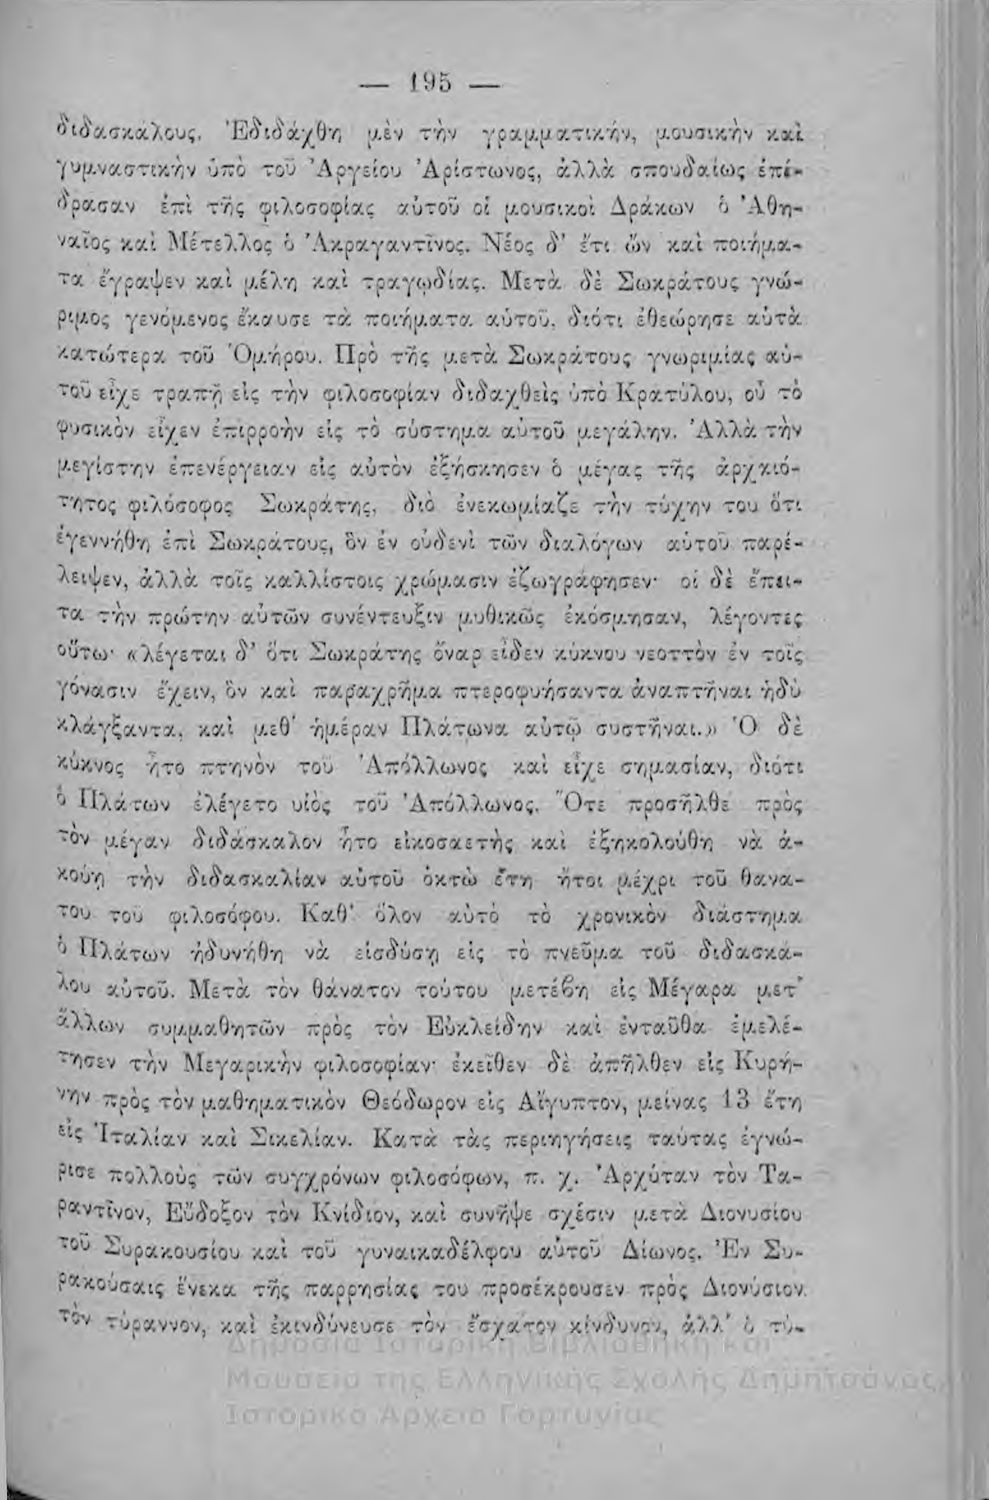 — 195 —
διδασκάλους. Ἐδιδάχθη μὲν τὴν γραμματικήν, μουσικὴν καὶ
γυμναστικὴν ὑπὸ τοῦ Ἀργείου Ἀρίστωνος, ἀλλὰ σπουδαίως ἐπέ-
δρασαν ἐπὶ τῆς φιλοσοφίας αὐτοῦ οἱ μουσικοὶ Δράκων ὁ Ἀθη-
ναῖος καὶ Μέτελλος ὁ Ἀκραγαντῖνος. Νέος δ' ἔτι ὢν καὶ ποιήμα-
τα ἔγραψεν καὶ μέλη καὶ τραγῳδίας. Μετὰ δὲ Σωκράτους γνώ-
ριμος γενόμενος ἔκαυσε τὰ ποιήματα αὑτοῦ, διότι ἐθεώρησε αὐτὰ
κατώτερα τοῦ Ὁμήρου. Πρὸ τῆς μετὰ Σωκράτους γνωριμίας αὐ-
τοῦ εἶχε τραπῆ εἰς τὴν φιλοσοφίαν διδαχθεὶς ὑπὸ Κρατύλου, οὗ τὸ
φυσικὸν εἶχεν ἐπιρροὴν εἰς τὸ σύστημα αὐτοῦ μεγάλην. Ἀλλὰ τὴν
μεγίστην ἐπενέργειαν εἰς αὐτὸν ἐξήσκησεν ὁ μέγας τῆς ἀρχαιό-
τητος φιλόσοφος Σωκράτης, διὸ ἐνεκωμίαζε τὴν τύχην του ὅτι
ἐγεννήθη ἐπὶ Σωκράτους, ὃν ἐν οὐδενὶ τῶν διαλόγων αὑτοῦ παρέ-
λειψεν, ἀλλὰ τοῖς καλλίστοις χρώμασιν ἐζωγράφησεν· οἱ δὲ ἔπει-
τα τὴν πρώτην αὐτῶν συνέντευξιν μυθικῶς ἐκόσμησαν, λέγοντες
οὕτω· «λέγεται δ' ὅτι Σωκράτης ὄναρ εἶδεν κύκνου νεοττὸν ἐν τοῖς
γόνασιν ἔχειν, ὃν καὶ παραχρῆμα πτεροφυήσαντα ἀναπτῆναι ἡδὺ
κλάγξαντα, καὶ μεθ' ἡμέραν Πλάτωνα αὐτῷ συστῆναι.» Ὁ δὲ
κύκνος ἦτο πτηνὸν τοῦ Ἀπόλλωνος καὶ εἶχε σημασίαν, διότι
ὁ Πλάτων ἐλέγετο υἱὸς τοῦ Ἀπόλλωνος. Ὅτε προσῆλθε πρὸς
τὸν μέγαν διδάσκαλον ἦτο εἰκοσαετὴς καὶ ἐξηκολούθη νὰ ἀ-
κούῃ τὴν διδασκαλίαν αὐτοῦ ὀκτὼ ἔτη ἤτοι μέχρι τοῦ θανά-
του τοῦ φιλοσόφου. Καθ' ὅλον αὐτὸ τὸ χρονικὸν διάστημα
ὁ Πλάτων ἠδυνήθη νὰ εἰσδύσῃ εἰς τὸ πνεῦμα τοῦ διδασκά-
λου αὐτοῦ. Μετὰ τὸν θάνατον τούτου μετέβη εἰς Μέγαρα μετ'
ἄλλων συμμαθητῶν πρὸς τὸν Εὐκλείδην καὶ ἐνταῦθα ἐμελέ-
τησεν τὴν Μεγαρικὴν φιλοσοφίαν· ἐκεῖθεν δὲ ἀπῆλθεν εἰς Κυρή-
νην πρὸς τὸν μαθηματικὸν Θεόδωρον εἰς Αἴγυπτον, μείνας 13 ἔτη
εἰς Ἰταλίαν καὶ Σικελίαν. Κατὰ τὰς περιηγήσεις ταύτας ἐγνώ-
ρισε πολλοὺς τῶν συγχρόνων φιλοσόφων, π. χ. Ἀρχύταν τὸν Τα-
ραντῖνον, Εὔδοξον τὸν Κνίδιον, καὶ συνῆψε σχέσιν μετὰ Διονυσίου
τοῦ Συρακουσίου καὶ τοῦ γυναικαδέλφου αὐτοῦ Δίωνος. Ἐν Συ-
ρακούσαις ἕνεκα τῆς παρρησίας του προσέκρουσεν πρὸς Διονύσιον
τὸν τύραννον, καὶ ἐκινδύνευσε τὸν ἔσχατον κίνδυνον, ἀλλ' ὁ τύ-
Δημόσια Ιστορική Βιβλιοθήκη και
Μουσείο της Ελληνικής Σχολής Δημητσάνας,
Ιστορικό Αρχείο Γορτυνίας